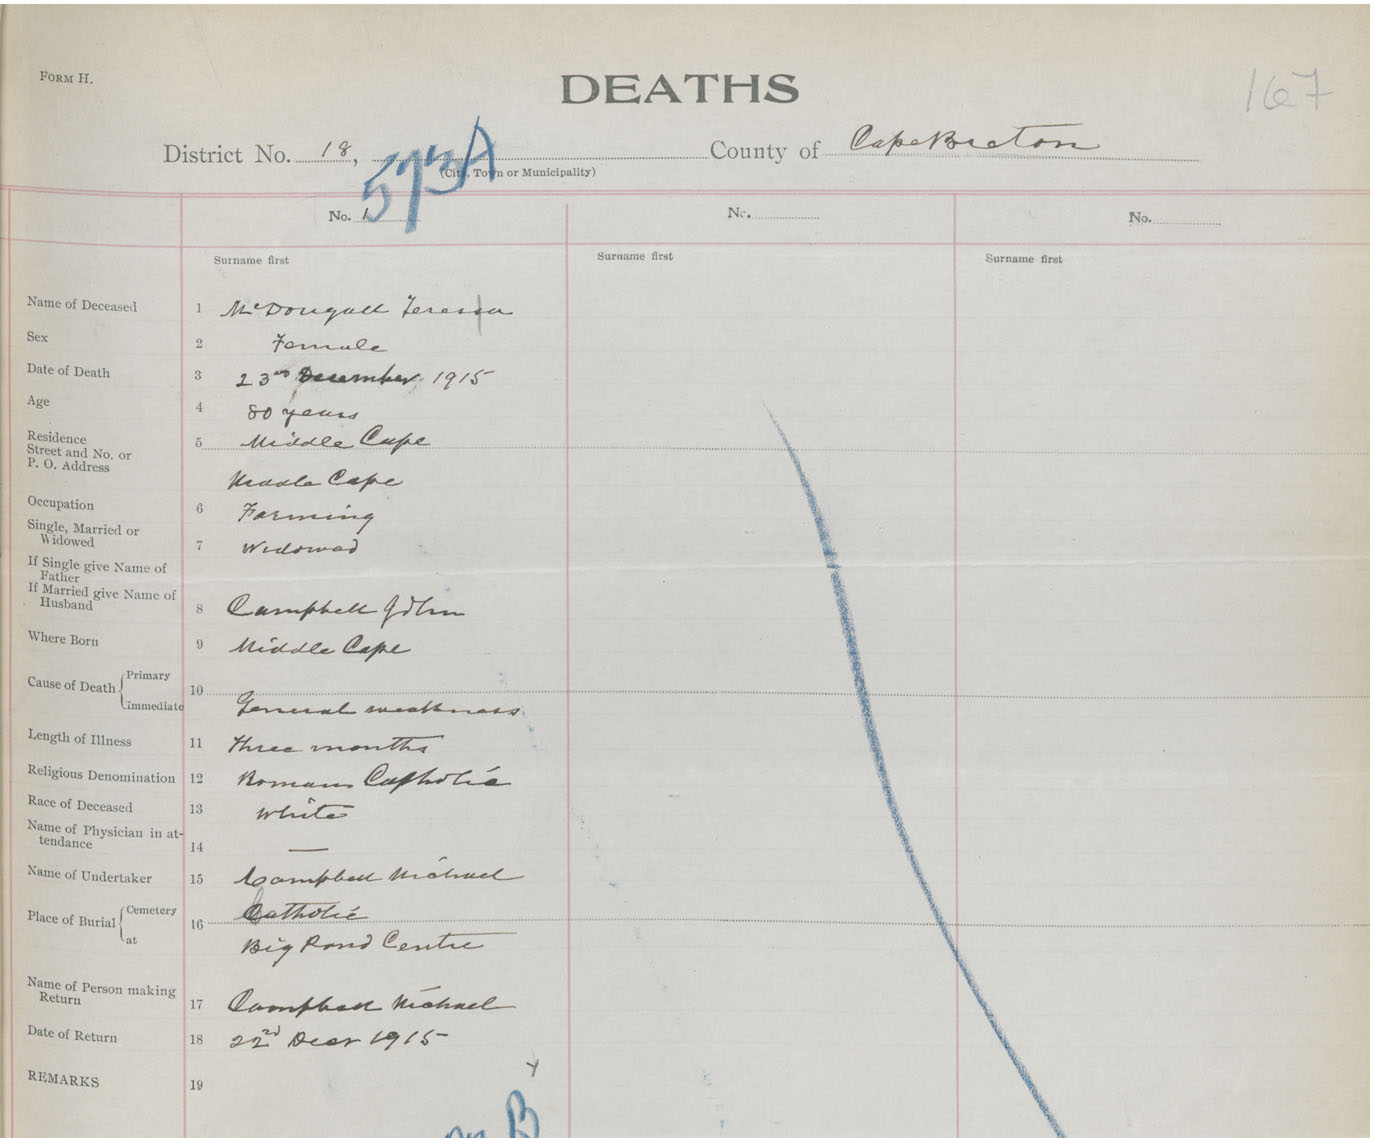 FORM H.
DEATHS
167
District No. 18,
County of Cape Breton
573A
(City, Town or Municipality)
No. 1
No.
No.
Surname first
Surname first
Surname first
Name of Deceased 1 McDougall Teressa
Sex 2 Female
Date of Death 3 23rd December 1915
Age 4 80 years
Residence
Street and No. or
P. O. Address
5 Middle Cape
Middle Cape
Occupation 6 Farming
Single, Married or
Widowed 7 Widowed
If Single give Name of
Father
If Married give Name of
Husband 8 Campbell John
Where Born 9 Middle Cape
Cause of Death Primary
immediate
10 General weakness
Length of Illness 11 three months
Religious Denomination 12 Roman Catholic
Race of Deceased 13 White
Name of Physician in at-
tendance 14 —
Name of Undertaker 15 Campbell Michael
Place of Burial Cemetery
at
16 Catholic
Big Pond Centre
Name of Person making
Return 17 Campbell Michael
Date of Return 18 22nd Decr 1915
REMARKS 19
B